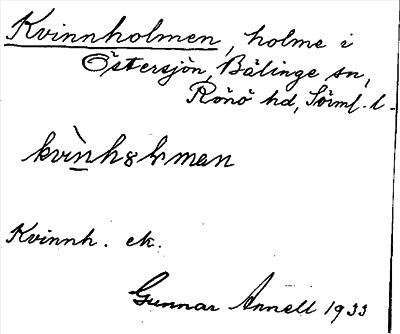 Kvinnholmen, holme i
Östersjön, Bälinge sn,
Rönö hd, Sörml. l.
Kvinnh. ek.
Gunnar Annell 1933